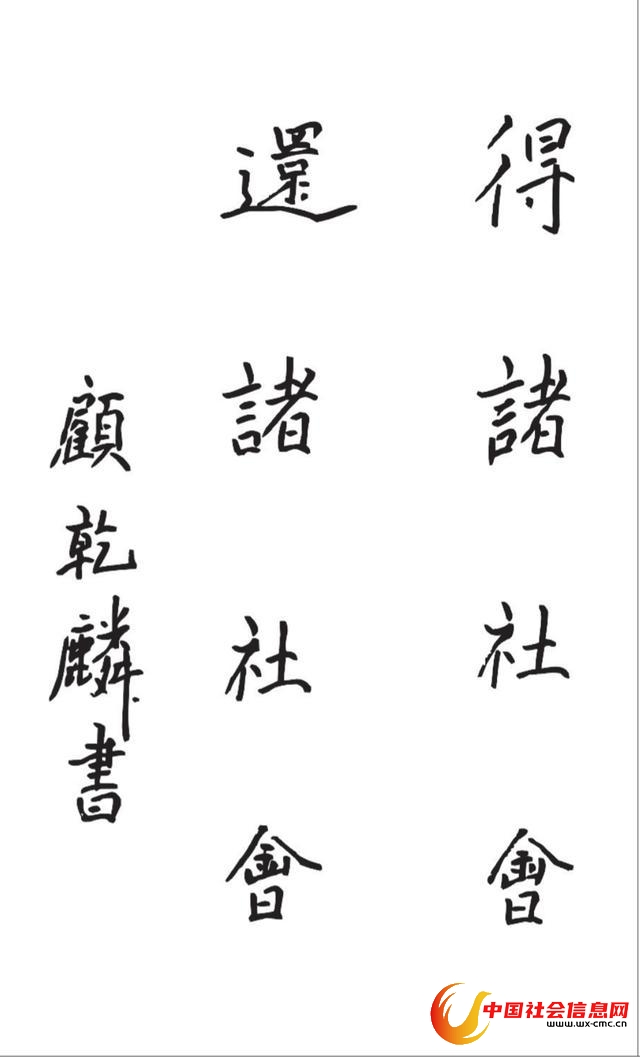 得諸社會
還諸社會
顧乾麟書
中国社会信息网
www.wx-cmc.cn